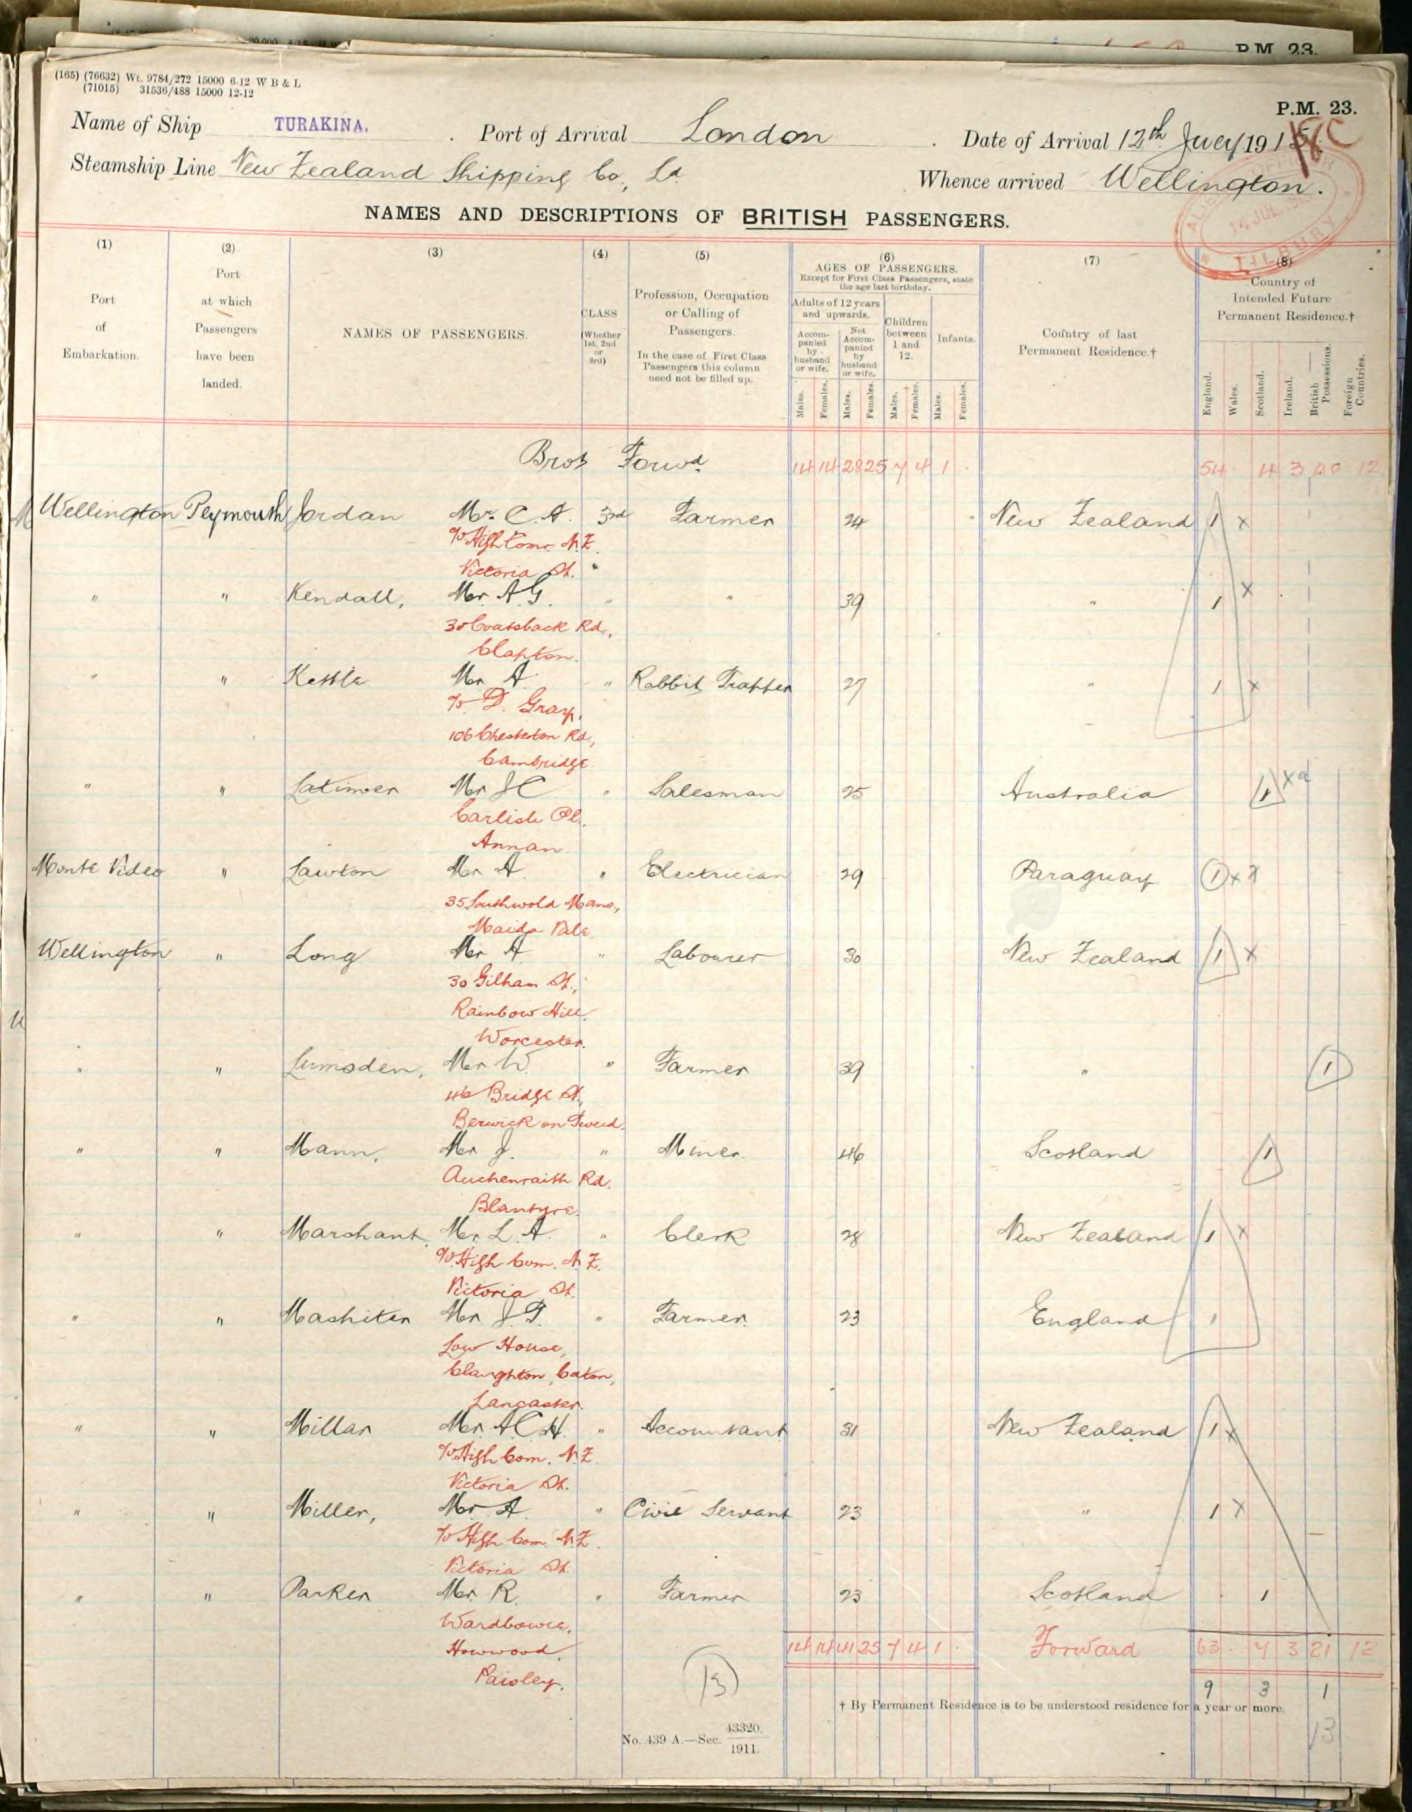 P.M. 23.
(165) (76632) Wt. 9784/272 15000 6-12 W B & L
(71015) 31536/488 15000 12-12
P.M. 23.
Name of Ship TURAKINA. Port of Arrival London. Date of Arrival 12th July 191
18C
Steamship Line New Zealand Shipping Co, Ld. Whence arrived Wellington.
TILBURY
NAMES AND DESCRIPTIONS OF BRITISH PASSENGERS.
(1) (2) (3) (4) (5) (6) (7) (8)
Port of Embarkation.
Port at which Passengers have been landed.
NAMES OF PASSENGERS.
CLASS (Whether 1st, 2nd or 3rd)
Profession, Occupation or Calling of Passengers.
In the case of First Class Passengers this column need not be filled up.
AGES OF PASSENGERS.
Except for First Class Passengers, state the age last birthday.
Adults of 12 years and upwards.
Accompanied by husband or wife.
Not Accompanied by husband or wife.
Children between 1 and 12.
Infants.
Males. Females. Males. Females. Males. Females. Males. Females.
Country of last Permanent Residence.†
Country of Intended Future Permanent Residence.†
England. Wales. Scotland. Ireland. British Possessions. Foreign Countries.
Brot Forwd 14 14 28 25 7 4 1 54 4 3 20 12
Wellington Plymouth Jordan Mr. C. A. 3rd Farmer 24 New Zealand 1 x
c/o High Com. N.Z.
Victoria St. "
" " Kendall, Mr. A G. " " 39 " 1 x
30 Coatsback Rd,
Clapton.
" " Kettle Mr A " Rabbit Trapper 27 " 1 x
c/o D. Gray,
106 Chesterton Rd,
Cambridge
" " Latimer Mr J C " Salesman 25 Australia 1 x
Carlisle Pl.
Annan
Monte Video " Lawton Mr. A. " Electrician 29 Paraguay 1 x
35 Southwold Mans,
Maida Vale
Wellington " Long Mr. A " Labourer 30 New Zealand 1 x
30 Gilham St.,
Rainbow Hill.
Worcester.
" " Lumsden, Mr W. " Farmer 39 " 1
46 Bridge St,
Berwick on Tweed.
" " Mann, Mr J. " Miner 46 Scotland 1
Auchenraith Rd.
Blantyre.
" " Marchant, Mr. L. A. " Clerk 28 New Zealand 1 x
c/o High Com. N.Z.
Victoria St.
" " Mashiter Mr J. T. " Farmer. 23 England 1
Low House,
Claughton, Caton,
Lancaster.
" " Millar Mr. A C H. " Accountant 31 New Zealand 1 x
c/o High Com. N.Z
Victoria St.
" " Miller, Mr A. " Civil Servant 23 " 1 x
c/o High Com. N.Z.
Victoria St.
" " Parker Mr. R. " Farmer 23 Scotland 1
Wardbowie,
Howwood,
Paisley.
14 14 41 25 7 4 1 Forward 63 7 3 21 12
13
9 3 1
† By Permanent Residence is to be understood residence for a year or more.
13
No. 439 A.—Sec. 43320. 1911.